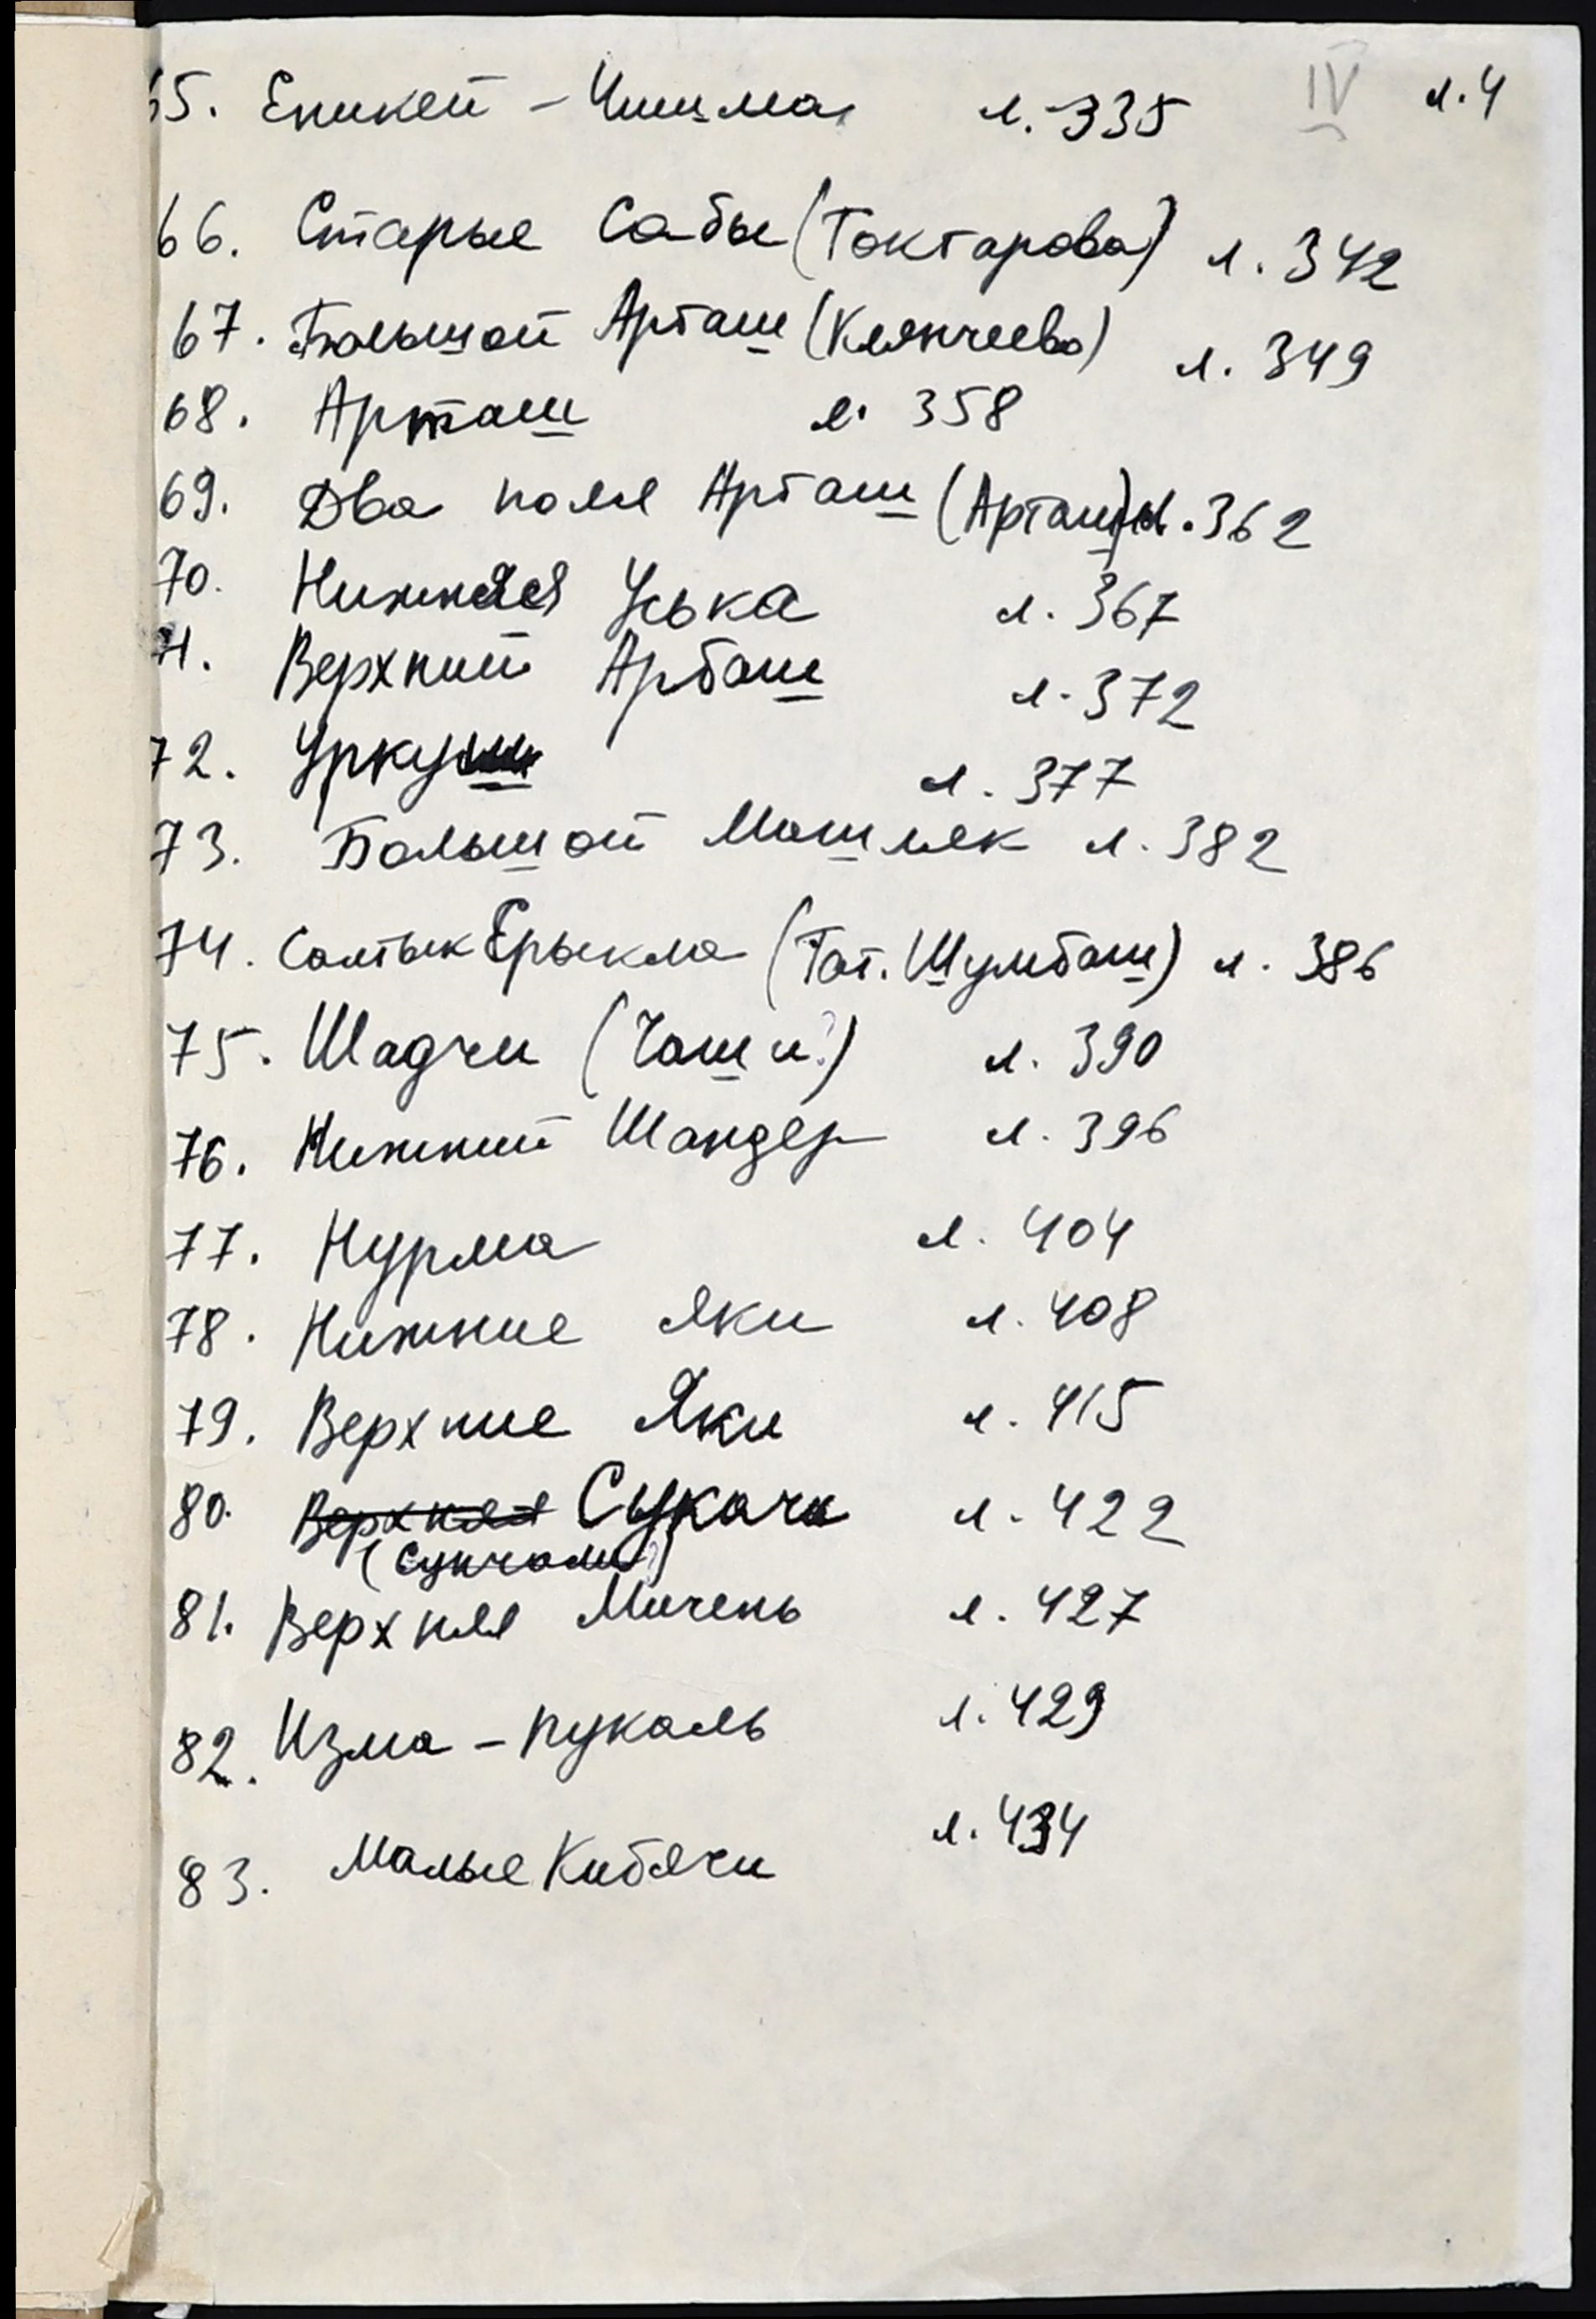 65. Еникей - Чишма л. 335 IV л. 4
66. Старые Сабы (Токтарова) л. 342
67. Большой Арташ (Клянчеево) л. 349
68. Арташ л. 358
69. Два поля Арташ (Арташ) л. 362
70. Нижняя Уська л. 367
71. Верхний Арбаш л. 372
72. Уркуш л. 377
73. Большой Машляк л. 382
74. Салтык Ерыкла (Тат. Шумбаш) л. 386
75. Шадчи (Чаши?) л. 390
76. Нижний Шандер л. 396
77. Нурма л. 404
78. Нижние Яки л. 408
79. Верхние Яки л. 415
80. Верхняя Сукачи л. 422
81. Верхняя Мичень л. 427
82. Изма - пукаль л. 429
83. Малые Кибячи л. 434